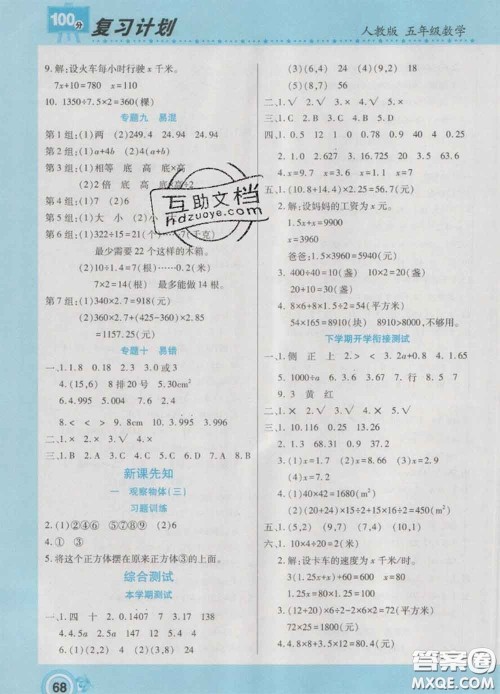 100分 复习计划
人教版 五年级数学
9. 解:设火车每小时行驶x千米。
7x+10=780 x=110
10. 1350÷7.5×2=360(棵)
专题九 易混
第1组:(1)两 (2)249.4 24.94 24.94
第2组:(1)a+4b (2)4(a+b)
第3组:(1)相等 底 高 底×高
(2)2倍 底 高 底×高÷2
第4组:(1)7
第5组:(1)大 小 (2)小
第6组:(1)322÷15=21(个)……7(千克)
最少需要22个这样的木箱。
(2)10÷1.4=7(根)……0.2(米)
7×2=14(根) 最多能做14根。
第7组:(1)340×2.7=918(元)
(2)360×2.7+(425-360)×2.85
=1157.25(元)
专题十 易错
一、1. 1.8 0.18 2. 3 3. 0或3
4. (15,6) 8排20号 5. 30cm²
6. 4.995 4.004 7. 0.6
8. < < > < 9. 8cm 10. 3.995 3.996
二、1. × 2. × 3. × 4. × 5. ×
三、1. B 2. A 3. C 4. D 5. C 6. D 7. A 8. B
新课先知
一 观察物体(三)
习题训练
2. (1)①④⑥ ⑤⑦⑧⑨ (2)6
4. ① ③
5. 将这个正方体摆在原来正方体③的上面。
综合测试
本学期测试
一、1. 四 十 2. 0.1407 3. 7 138
4. 4.6 5. 5a a 6. 147 7. 1.9
68
(3)(6,4) 24 (4)(9,2) 18
(5)(8,7)
二、1. √ 2. × 3. × 4. √ 5. √
三、1. C 2. B 3. A 4. B 5. D
四、1. 0.5 12 1 0.78 0.9 40 4 0.25
0.4
2. 1.0 29.67 3. 16.725 13.5 63
4. x=9.7 x=3.6 x=9.1 x=0.87
五、1. (10.8+14.4)×2.5=63(元)
2. 解:设妈妈的工资为x元。
1.5x+x=9900
x=3960
爸爸:1.5x=5940
3. 400÷40=10(盏) 10×2=20(盏)
20+10=30(盏)
4. 8×6+8×1.5÷2=54(平方米)
54×165=8910(元) 8910>8000,不够用。
下学期开学衔接测试
一、1. 侧 正 上 2. < > < 3. 2a+0.8 4. 1.65
5. 1000÷a 6. 1.5 7. 行 8. 5.7
9. 3 黄 红
二、1. × 2. √ 3. × 4. √ 5. √
三、1. C 2. C 3. C 4. B 5. A
四、1. 10. 116 0.25 13. 26
2. 1.53 1.85 31.35 0.5
3. (1)x=1.7 (2)x=4.8 (3)x=1.7
(4)x=1
4. (1)40×42=1680(m²)
(2)(20+24)×15÷2+15×16÷2=450(m²)
五、1. (5,2) (5,7) (10,2)
六、1. 10÷(4÷0.8)=2(米)
2. 解:设卡车的速度为x千米/时。
1.3x+60×1.3=130 x=40
3. (12+20)×6÷2-2×6÷2-2×(12-6)÷2-(20-6)×6÷2=72(平方厘米)
72×25=1800(元)
4. 4.8×8+3.5×(12-8)=52.4(元)
互助文档
hdzuoye.com
答案圈
MXQE.COM